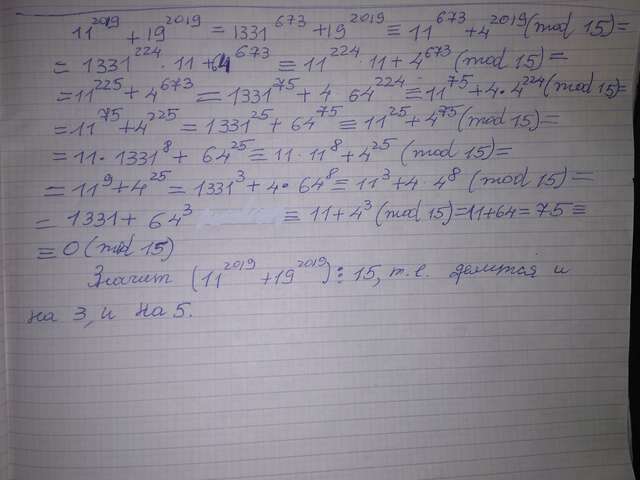 11²⁰¹⁹ + 19²⁰¹⁹ = 1331⁶⁷³ + 19²⁰¹⁹ ≡ 11⁶⁷³ + 4²⁰¹⁹ (mod 15) =
= 1331²²⁴ · 11 + 64⁶⁷³ ≡ 11²²⁴ · 11 + 4⁶⁷³ (mod 15) =
= 11²²⁵ + 4⁶⁷³ = 1331⁷⁵ + 4 · 64²²⁴ ≡ 11⁷⁵ + 4 · 4²²⁴ (mod 15) =
= 11⁷⁵ + 4²²⁵ = 1331²⁵ + 64⁷⁵ ≡ 11²⁵ + 4⁷⁵ (mod 15) =
= 11 · 1331⁸ + 64²⁵ ≡ 11 · 11⁸ + 4²⁵ (mod 15) =
= 11⁹ + 4²⁵ = 1331³ + 4 · 64⁸ ≡ 11³ + 4 · 4⁸ (mod 15) =
= 1331 + 64³ ≡ 11 + 4³ (mod 15) = 11 + 64 = 75 ≡
≡ 0 (mod 15)
Значит (11²⁰¹⁹ + 19²⁰¹⁹) ⋮ 15, т.е. делится и
на 3, и на 5.